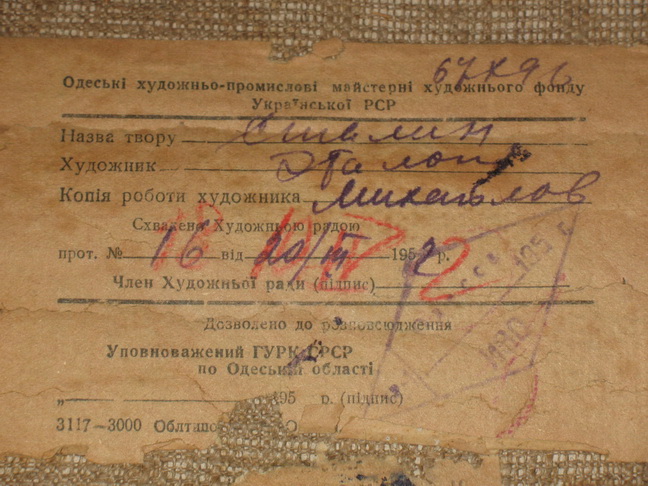 Одеські художньо-промислові майстерні художнього фонду
Української РСР
Назва твору Сталин
Художник Эталон
Копія роботи художника Михайлов
Схвалена Художньою радою
прот. № 16 від 20/III 1952 р.
Член Художньої ради (підпис)
Дозволено до розповсюдження
Уповноважений ГУРК СРСР
по Одеській області
„ 195 р. (підпис)
3117—3000